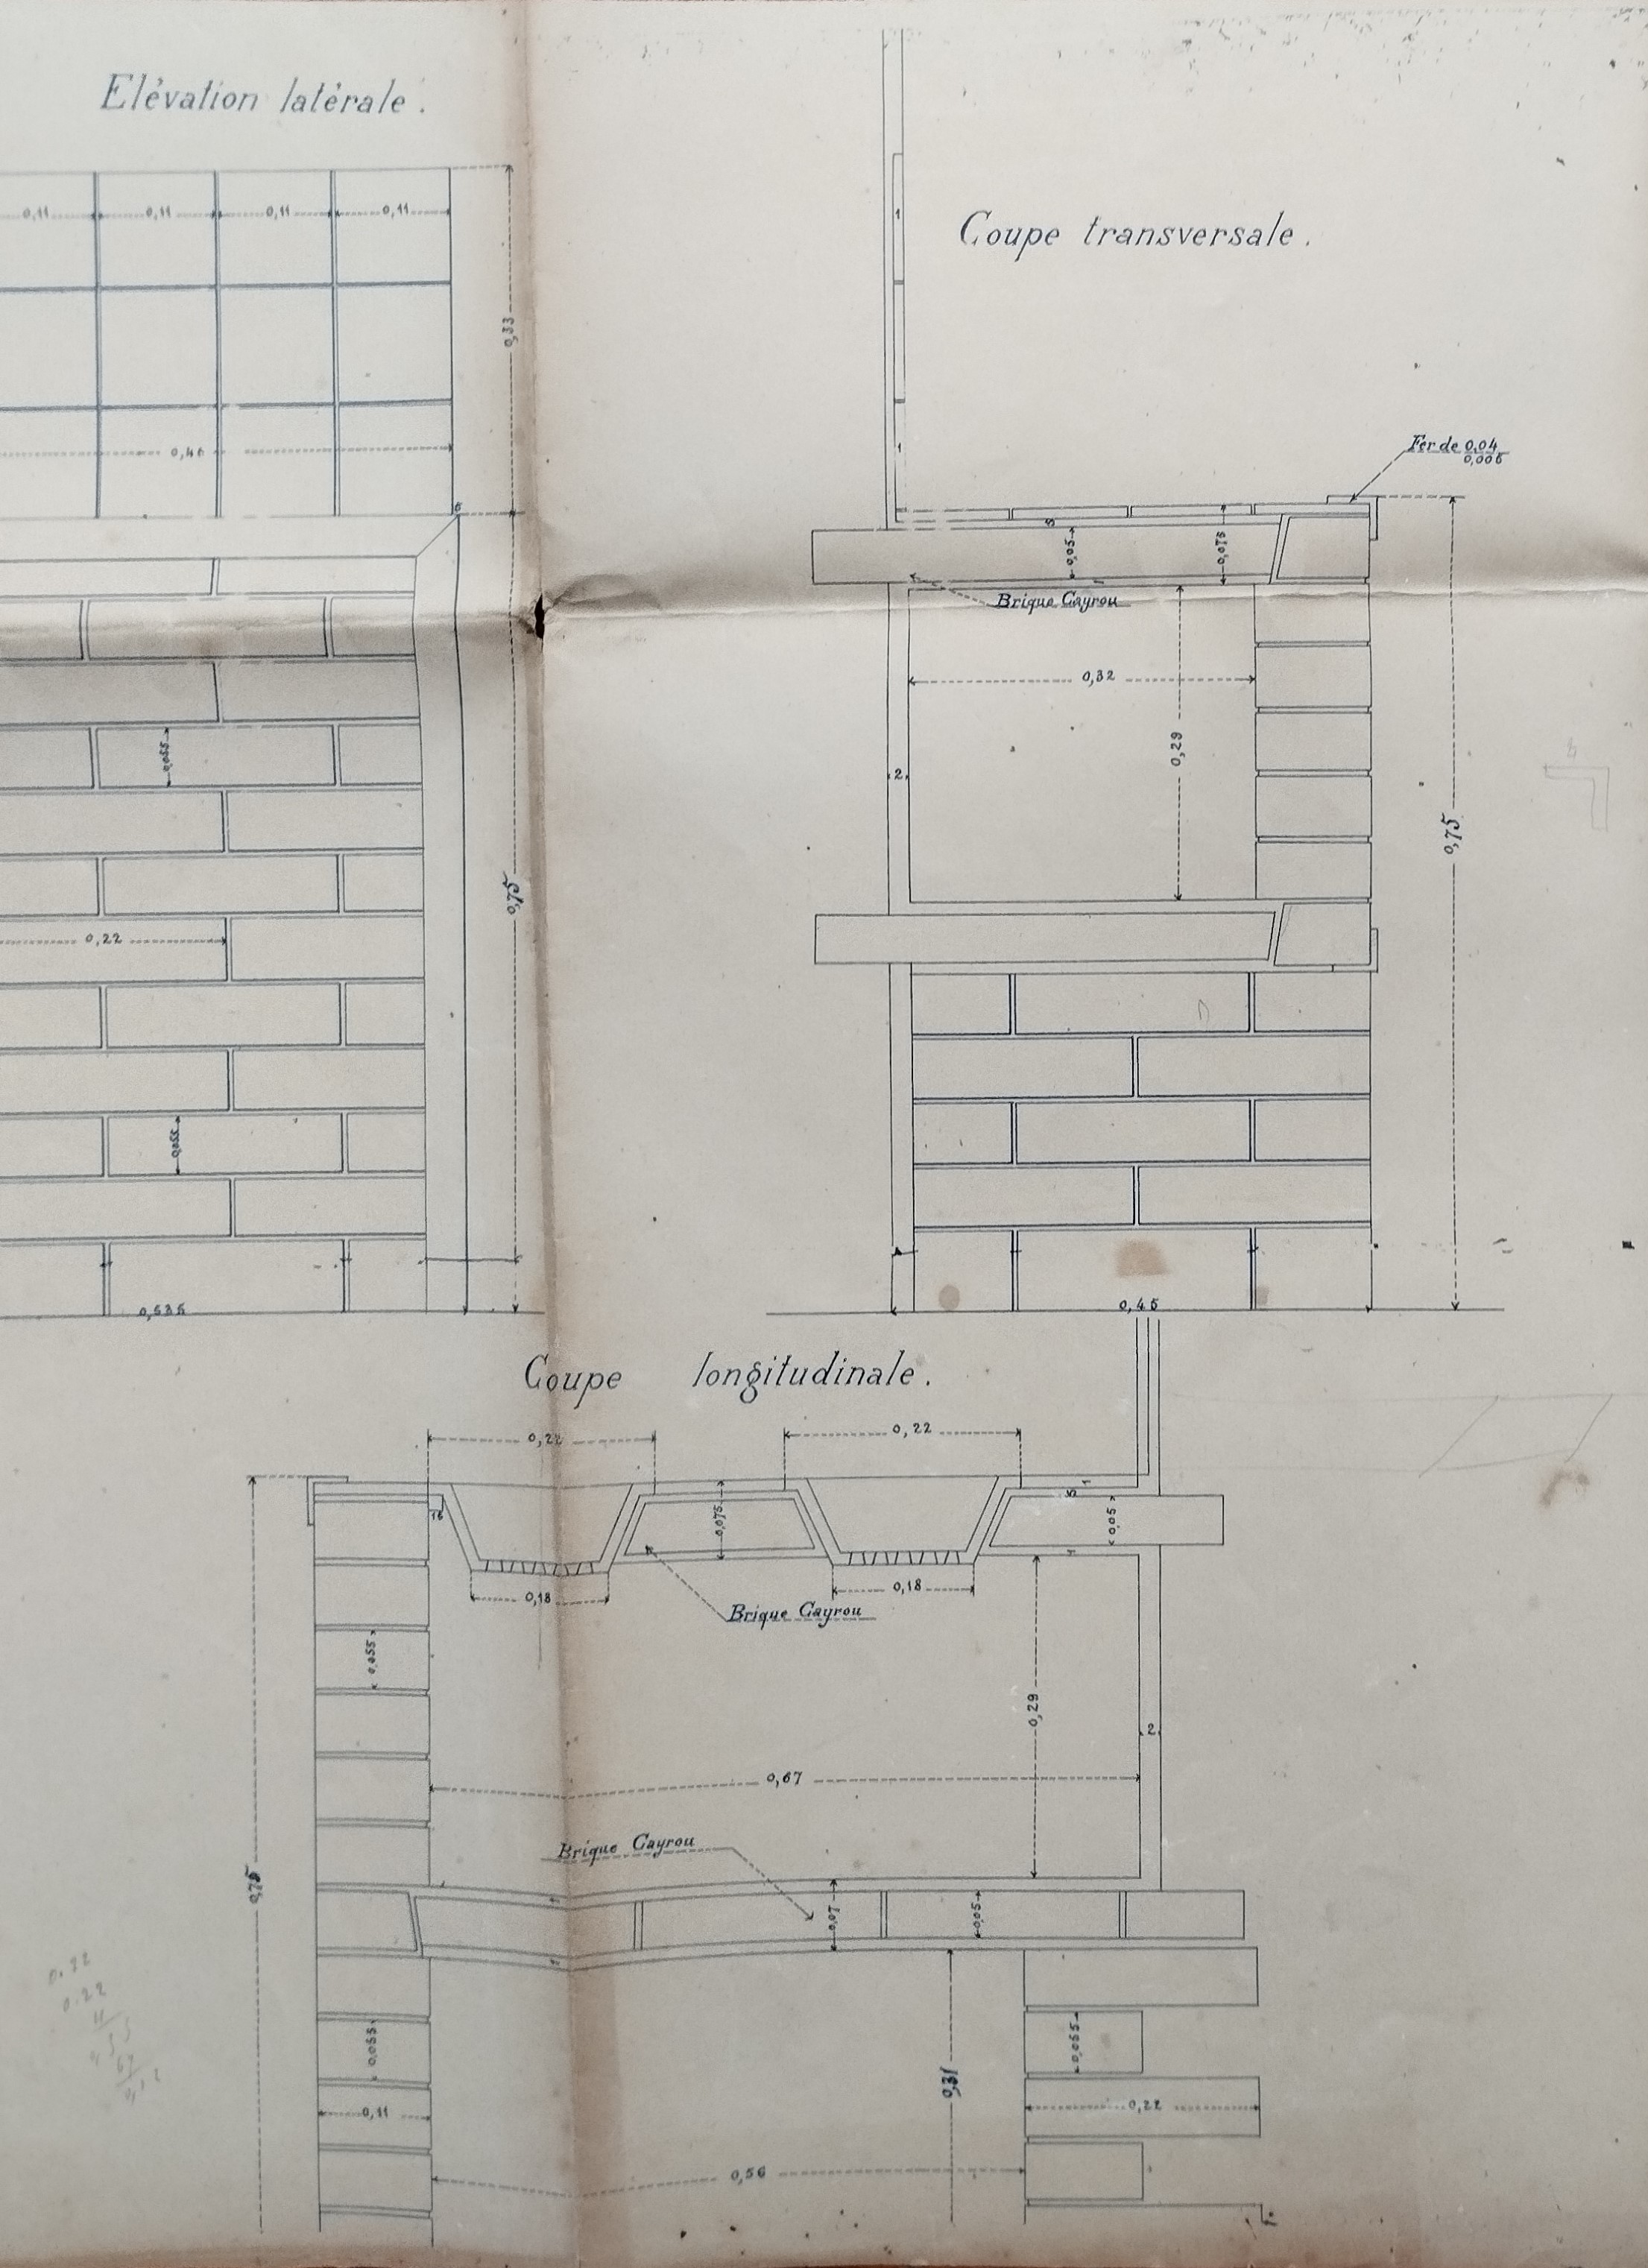 Elévation latérale.
0,11 0,11 0,11 0,11
0,33
0,46
6
0,055
0,75
0,22
0,055
0,535
Coupe transversale.
1
1
Fer de 0,04
0,006
5
0,05
0,075
1
Brique Gayrou
0,32
0,29
2
0,75
0,45
Coupe longitudinale.
0,22 0,22
15
0,075
5 1
0,05
1
0,18 0,18
Brique Gayrou
0,055
0,29
2
0,67
Brique Gayrou
0,75
1
0,07
0,05
1
0.22
0.22
0,055
0,31
0,055
0,11
0,22
0,56